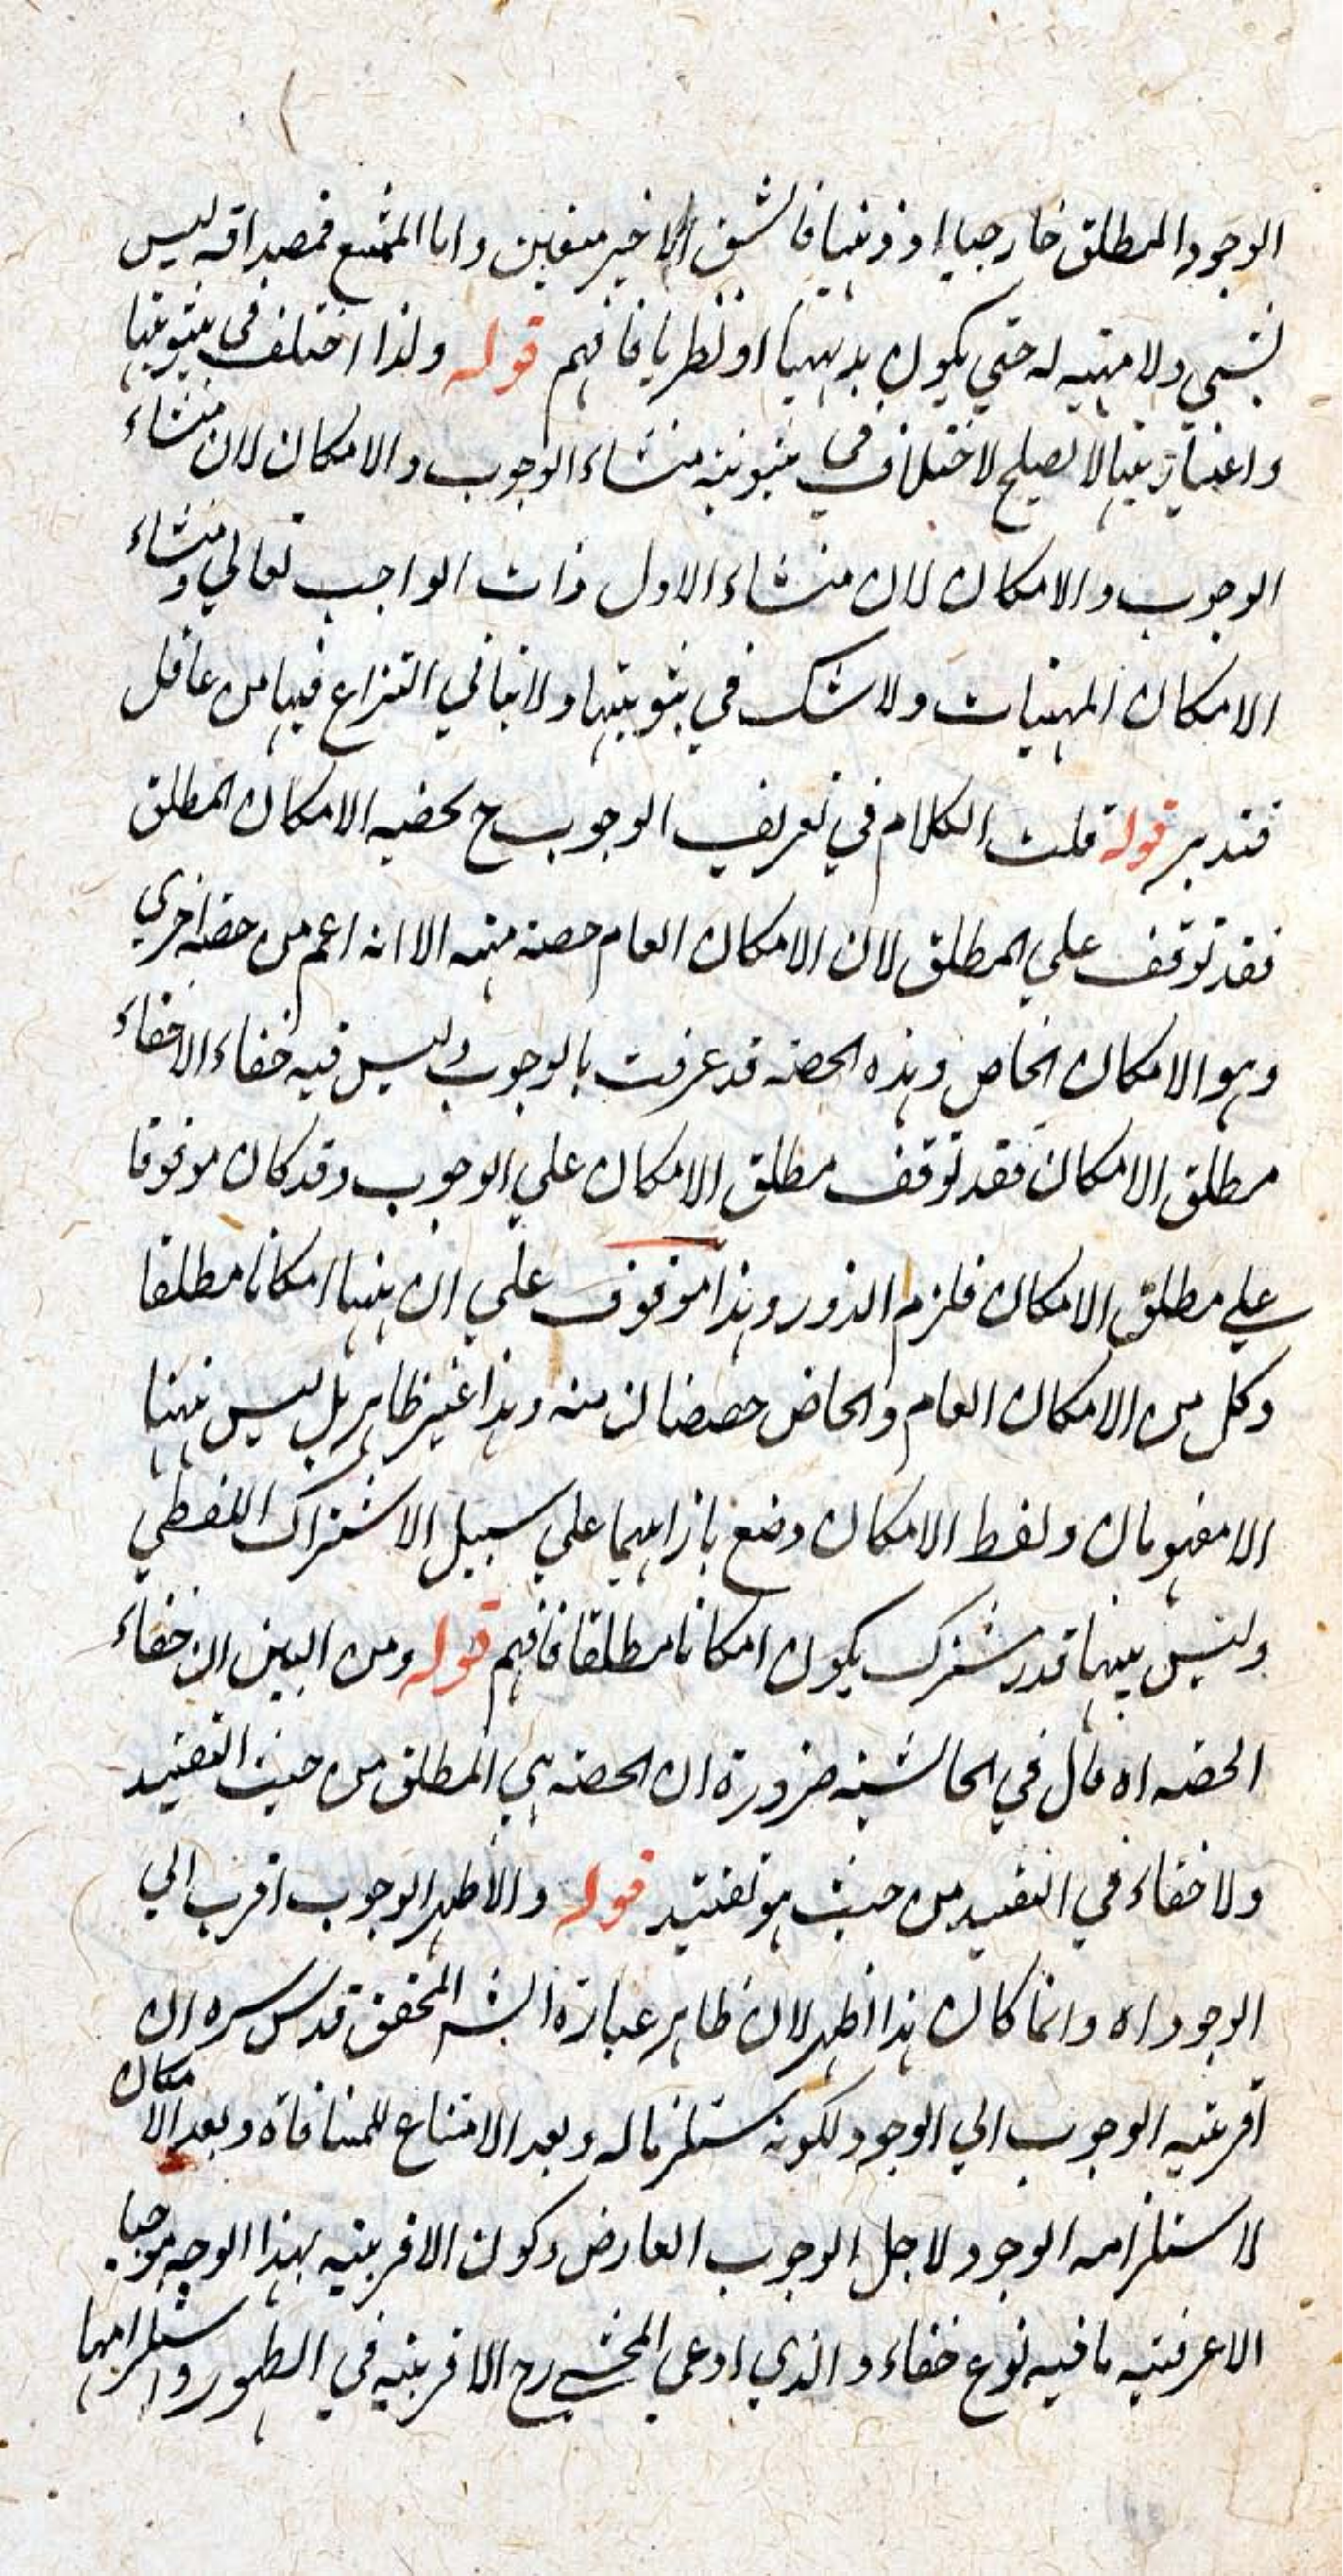 الوجود المطلق خارجيا او ذهنيا فالشق الاخير متعين واما الممتنع فمصداقه ليس
بشيء ولا مهية له حتي يكون بديهيا او نظريا فافهم قوله ولذا اختلف في ثبوتيتها
واعتباريتها لا يصلح لاختلاف في ثبوتية منشاء الوجوب والامكان لان منشاء
الوجوب والامكان لان منشاء الاول ذات الواجب تعالي ومنشاء
الامكان المهيات ولا شك في ثبوتيتها ولا يتاتي النزاع فيها من عاقل
فتدبر قوله قلت الكلام في تعريف الوجوب ح بحصة الامكان المطلق
فقد توقف علي المطلق لان الامكان العام حصة منه الا انه اعم من حصة اخري
وهو الامكان الخاص وهذه الحصة قد عرفت بالوجوب وليس فيه خفاء الا خفاء
مطلق الامكان فقد توقف مطلق الامكان علي الوجوب وقد كان موقوفا
علي مطلق الامكان فلزم الدور وهذا موقوف علي ان ههنا امكانا مطلقا
وكل من الامكان العام والخاص حصتان منه وهذا غير ظاهر بل ليس ههنا
الا مفهومان ولفظ الامكان وضع بازائهما علي سبيل الاشتراك اللفظي
وليس بينهما قدر مشترك يكون امكانا مطلقا فافهم قوله ومن البين ان خفاء
الحصة اه قال في الحاشية ضرورة ان الحصة هي المطلق من حيث التقييد
ولا خفاء في التقييد من حيث هو تقييد قوله والاظهر الوجوب اقرب الي
الوجود اه وانما كان هذا اظهر لان ظاهر عبارة الشه المحقق قدس سره ان
اقربية الوجوب الي الوجود لكونه مستلزما له وبعد الامتناع للمنافاة وبعد الامكان
لاستلزامه الوجود لاجل الوجوب العارض وكون الاقربية بهذا الوجه موجبا
الاعرفية ما فيه نوع خفاء والذي ادعي المحشي رح الاقربية في الظهور واستلزامها